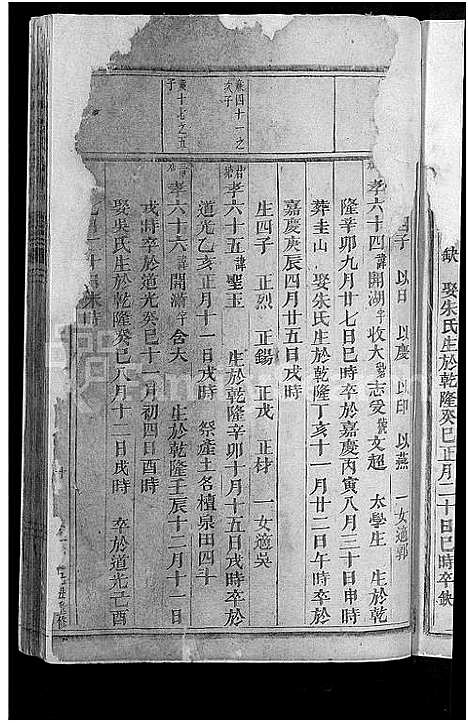 缺 娶朱氏生於乾隆癸巳正月二十日巳時卒缺
子 以日 以慶 以印 以燕 一女適郭
孝六十四諱開湖字收大號志爱號文超 太學生 生於乾
隆辛卯九月廿七日巳時卒於嘉慶丙寅八月三十日申時
葬圭山 娶朱氏生於乾隆丁亥十一月廿二日午時卒於
嘉慶庚辰四月廿五日戌時
生四子 正烈 正鍚 正戎 正材 一女適吳
兼四十一之
次子
孝六十五諱聖玉 生於乾隆辛卯十月十五日戌時卒於
道光乙亥正月十一日戌時 祭產土名檀泉田四斗
十七之五
子
孝六十六諱開濟字含天 生於乾隆壬辰十二月十一日
戌時卒於道光癸巳十一月初四日酉時
娶吳氏生於乾隆癸巳八月十二日戌時 卒於道光己酉
時